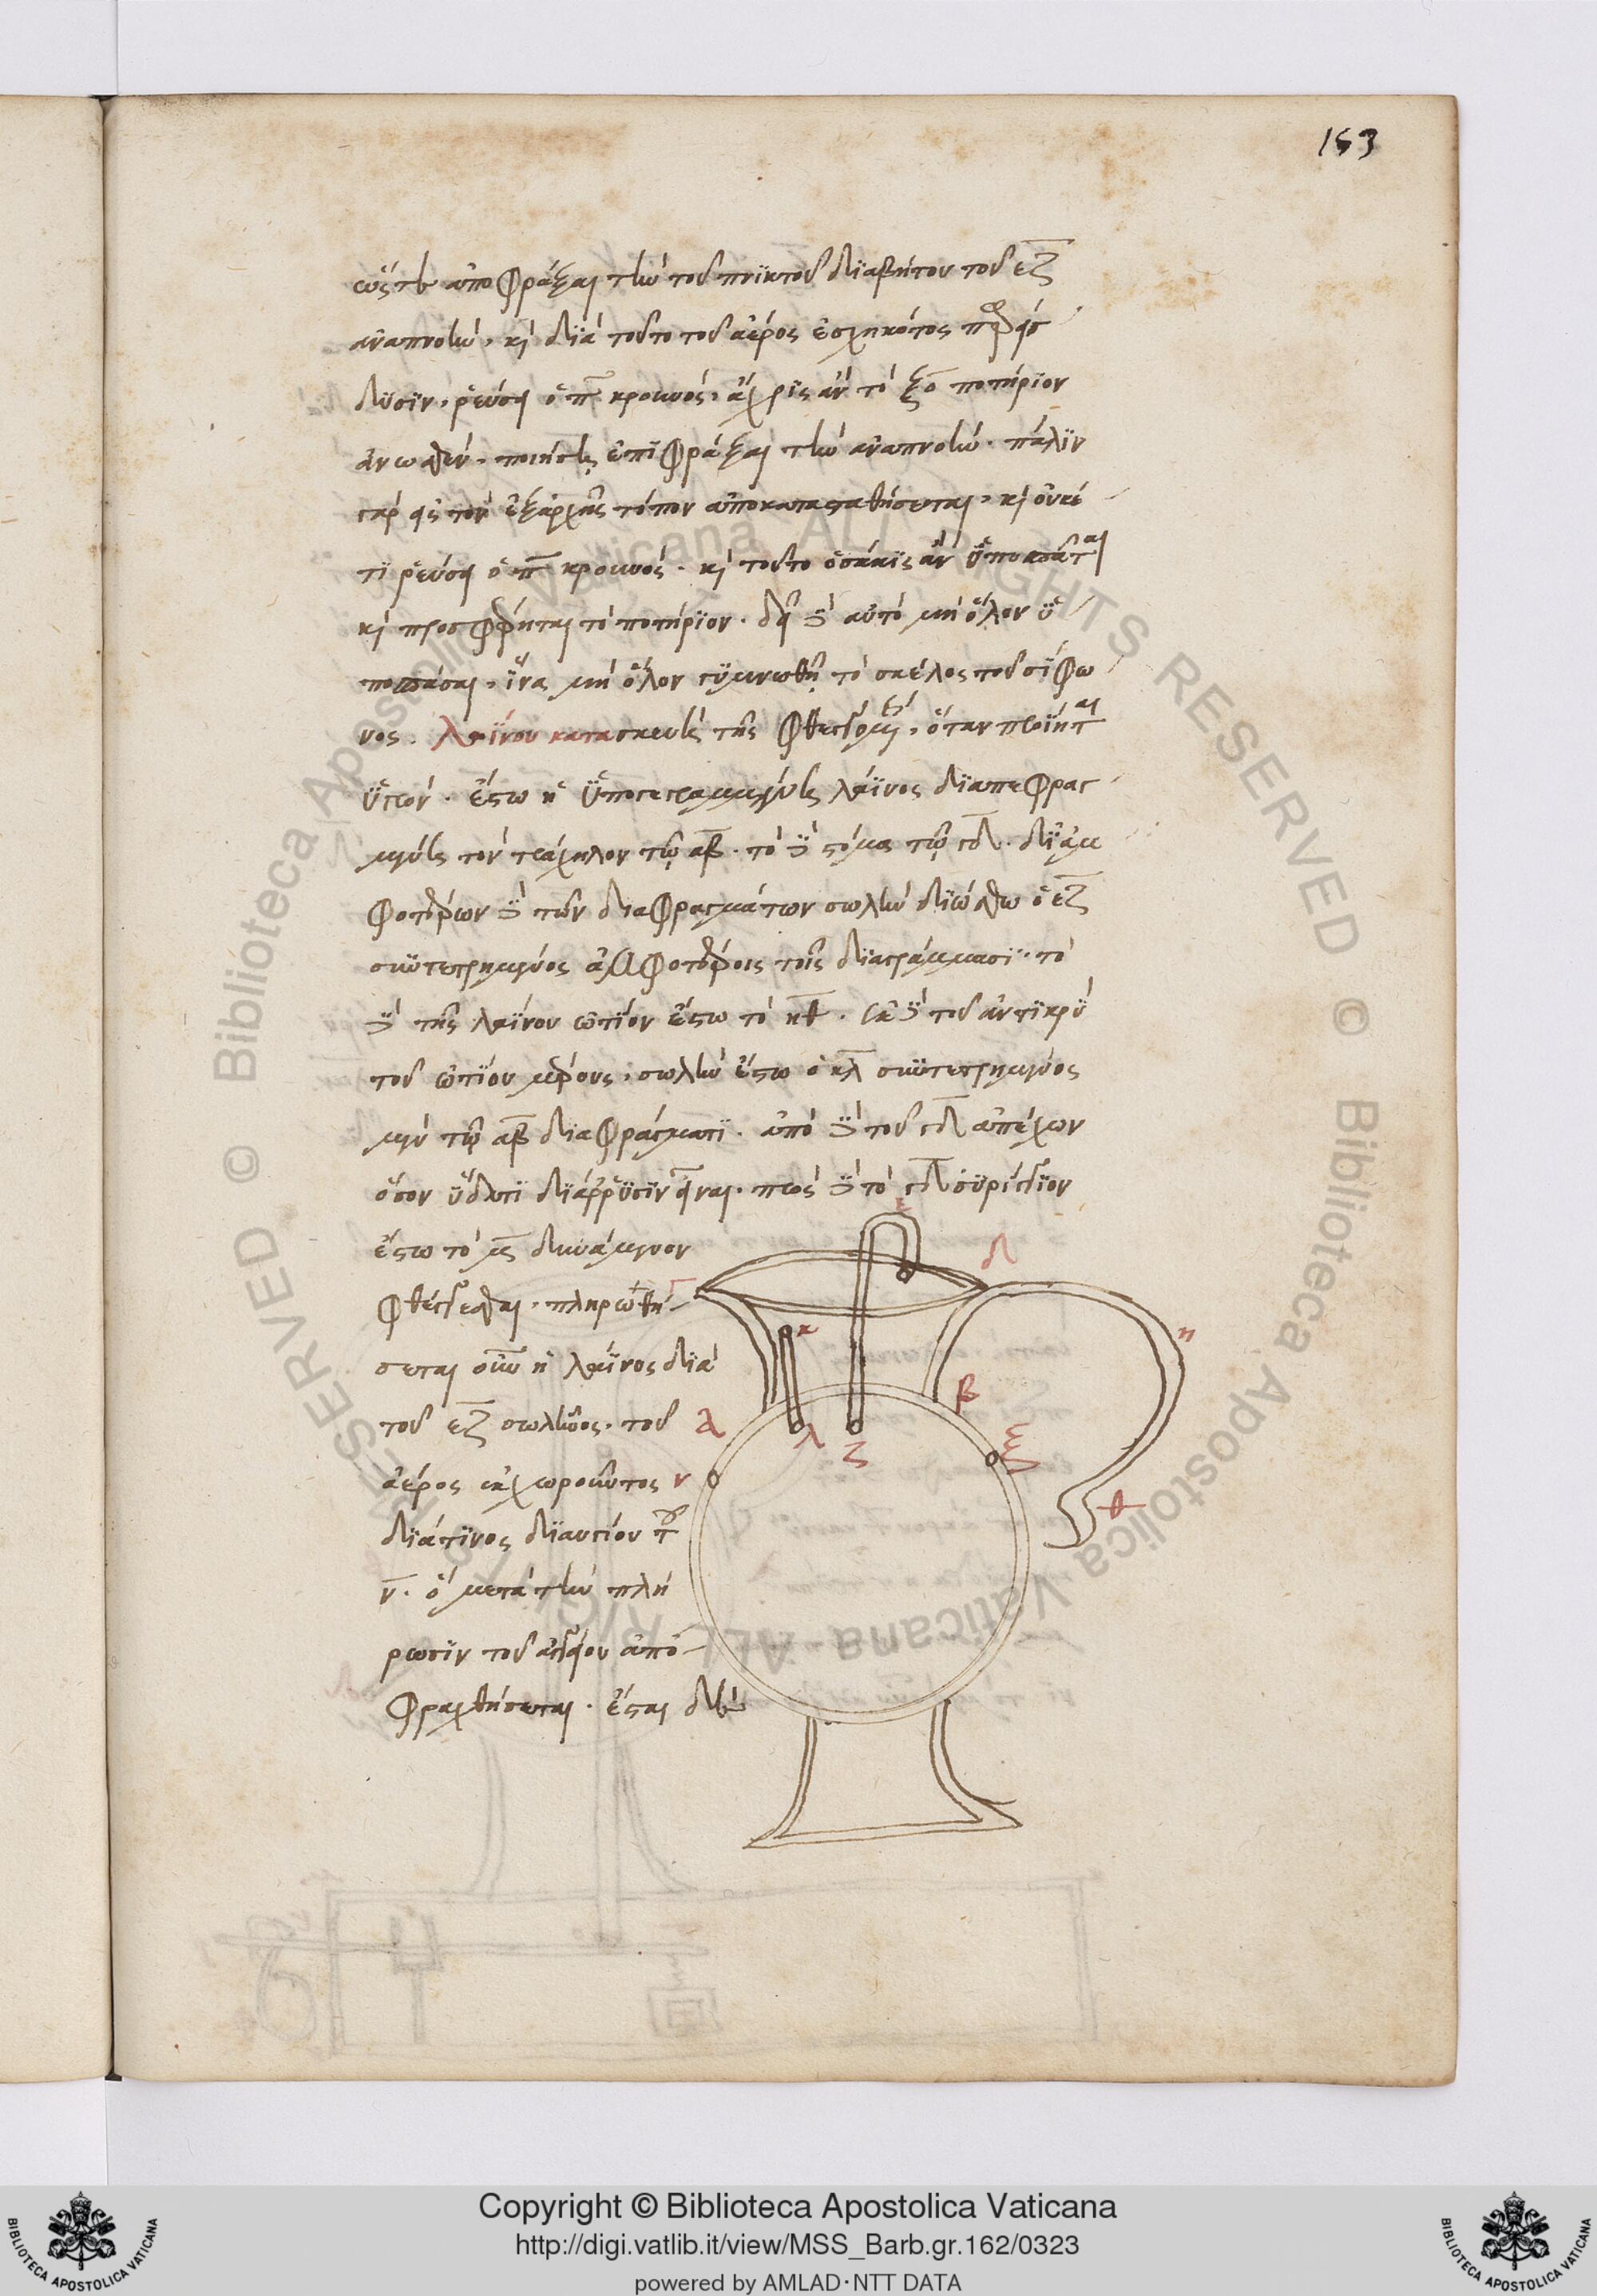 153
ὥστε ἀποφράξαι τὴν τοῦ πνικτοῦ διαβήτου τοῦ εζ
ἀναπνοὴν, καὶ διὰ τοῦτο τοῦ ἀέρος ἐσχηκότος
λῦσιν, ῥεύσει ὁ π κρουνός, ἄχρις ἂν τὸ ξο ποτήριον
ἄνωθεν, ποιήσῃς ἐπιφράξαι τὴν ἀναπνοήν. πάλιν
γὰρ εἰς τὸν ἐξαρχῆς τόπον ἀποκατασταθήσεται, καὶ οὐκέ
τι ῥεύσει ὁ π κρουνός. καὶ τοῦτο ὁσάκις ἂν ὑποσπᾶται
καὶ προσφέρηται τὸ ποτήριον. δεῖ δὲ αὐτὸ μὴ ὅλον ὑ
ποσπάσαι, ἵνα μὴ ὅλον γυμνωθῇ τὸ σκέλος τοῦ σίφω
νος. Λαγίνου κατασκευὴ τῆς φθεγγομένης, ὅταν προίηται
ὑγρόν. ἔστω ἡ ὑπογεγραμμένη λάγινος διαπεφραγ
μένη τὸν τράχηλον τῷ αβ. τὸ δὲ στόμα τῷ γδ. δι' ἀμ
φοτέρων δὲ τῶν διαφραγμάτων σωλὴν διώσθω ὁ εζ
συντετρημένος ἀμφοτέροις τοῖς διαγράμμασι. τὸ
δὲ τῆς λαγίνου ὠτίον ἔστω τὸ ηθ. ἐκ δὲ τοῦ ἀντικρὺ
τοῦ ὠτίου μέρους, σωλὴν ἔστω ὁ κλ συντετρημένος
μὲν τῷ αβ διαφράγματι. ἀπὸ δὲ τοῦ γδ ἀπέχων
ὅσον ὕδατι διάρρυσιν εἶναι. πρὸς δὲ τὸ γδ συρίγγιον
ἔστω τὸ μξ δυνάμενον
φθέγγεσθαι. πληρωθή
σεται οὖν ἡ λάγινος διὰ
τοῦ εζ σωλῆνος. τοῦ
ἀέρος ἐκχωροῦντος
διά τινος διαυγίου τοῦ
ν. ὃ μετὰ τὴν πλή
ρωσιν τοῦ ἀγγείου ἀπο
φραχθήσεται. ἔσται
ε
δ
γ
κ
η
β
α
λ
ζ
ξ
ν
θ
Copyright © Biblioteca Apostolica Vaticana
http://digi.vatlib.it/view/MSS_Barb.gr.162/0323
powered by AMLAD·NTT DATA
BIBLIOTECA APOSTOLICA VATICANA
BIBLIOTECA APOSTOLICA VATICANA
© Biblioteca Apostolica Vaticana ALL RIGHTS RESERVED
© Biblioteca Apostolica Vaticana ALL RIGHTS RESERVED